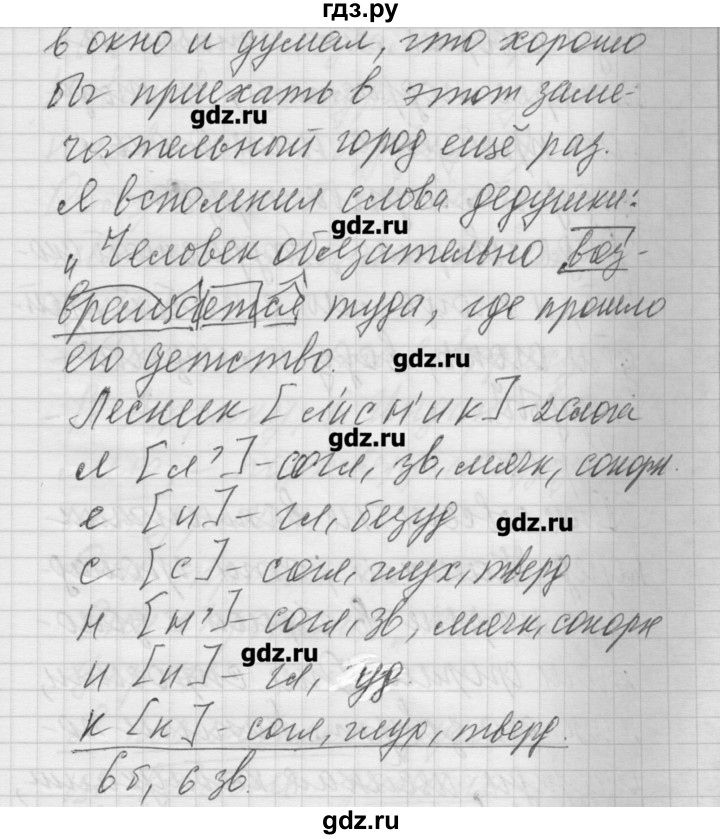 гдз.ру
в окно и думал, что хорошо
бы приехать в этот заме-
gdz.ru
чательный город ещё раз.
Я вспомнил слова дедушки:
gdz.ru
„Человек обязательно воз-
вращается туда, где прошло
его детство.
gdz.ru
Лесник [л'исн'ик] - 2 слога
gdz.ru
л [л'] - согл, зв, мягк, сонорн.
е [и] - гл, безуд
gdz.ru
с [с] - согл, глух, тверд
н [н'] - согл, зв, мягк, сонорн
gdz.ru
и [и] - гл, уд.
к [к] - согл, глух, тверд.
6 б, 6 зв.
гдз.ру